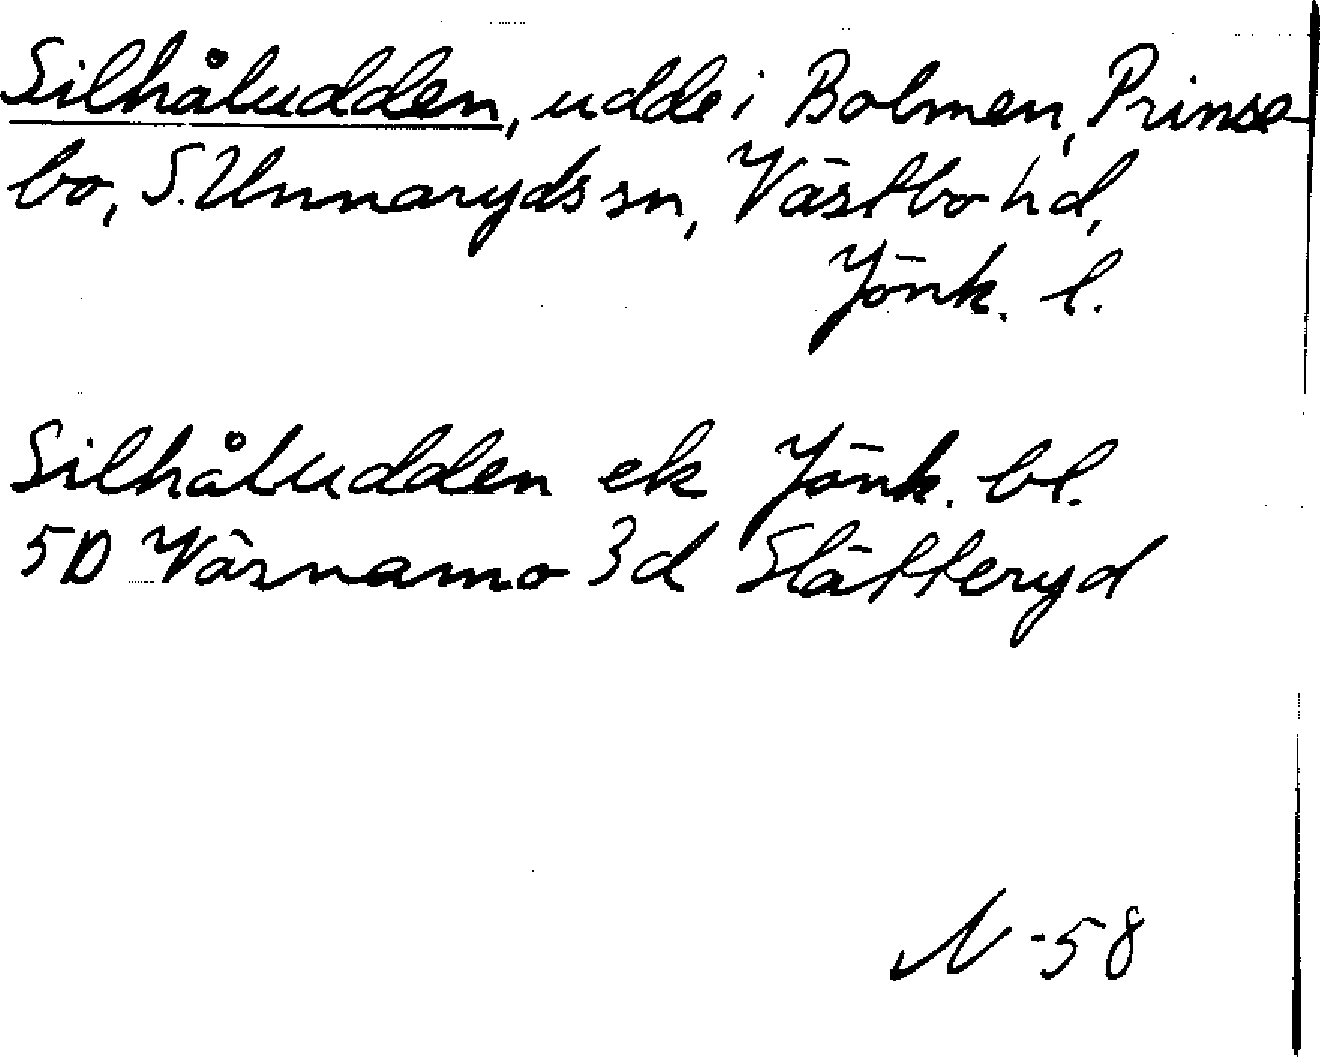 Silhåludden, udde i Bolmen, Prinse-
bo, S. Unnaryds sn, Västbo hd,
Jönk. l.
Silhåludden ek Jönk. bl.
5D Värnamo 3d Slätteryd
N -58